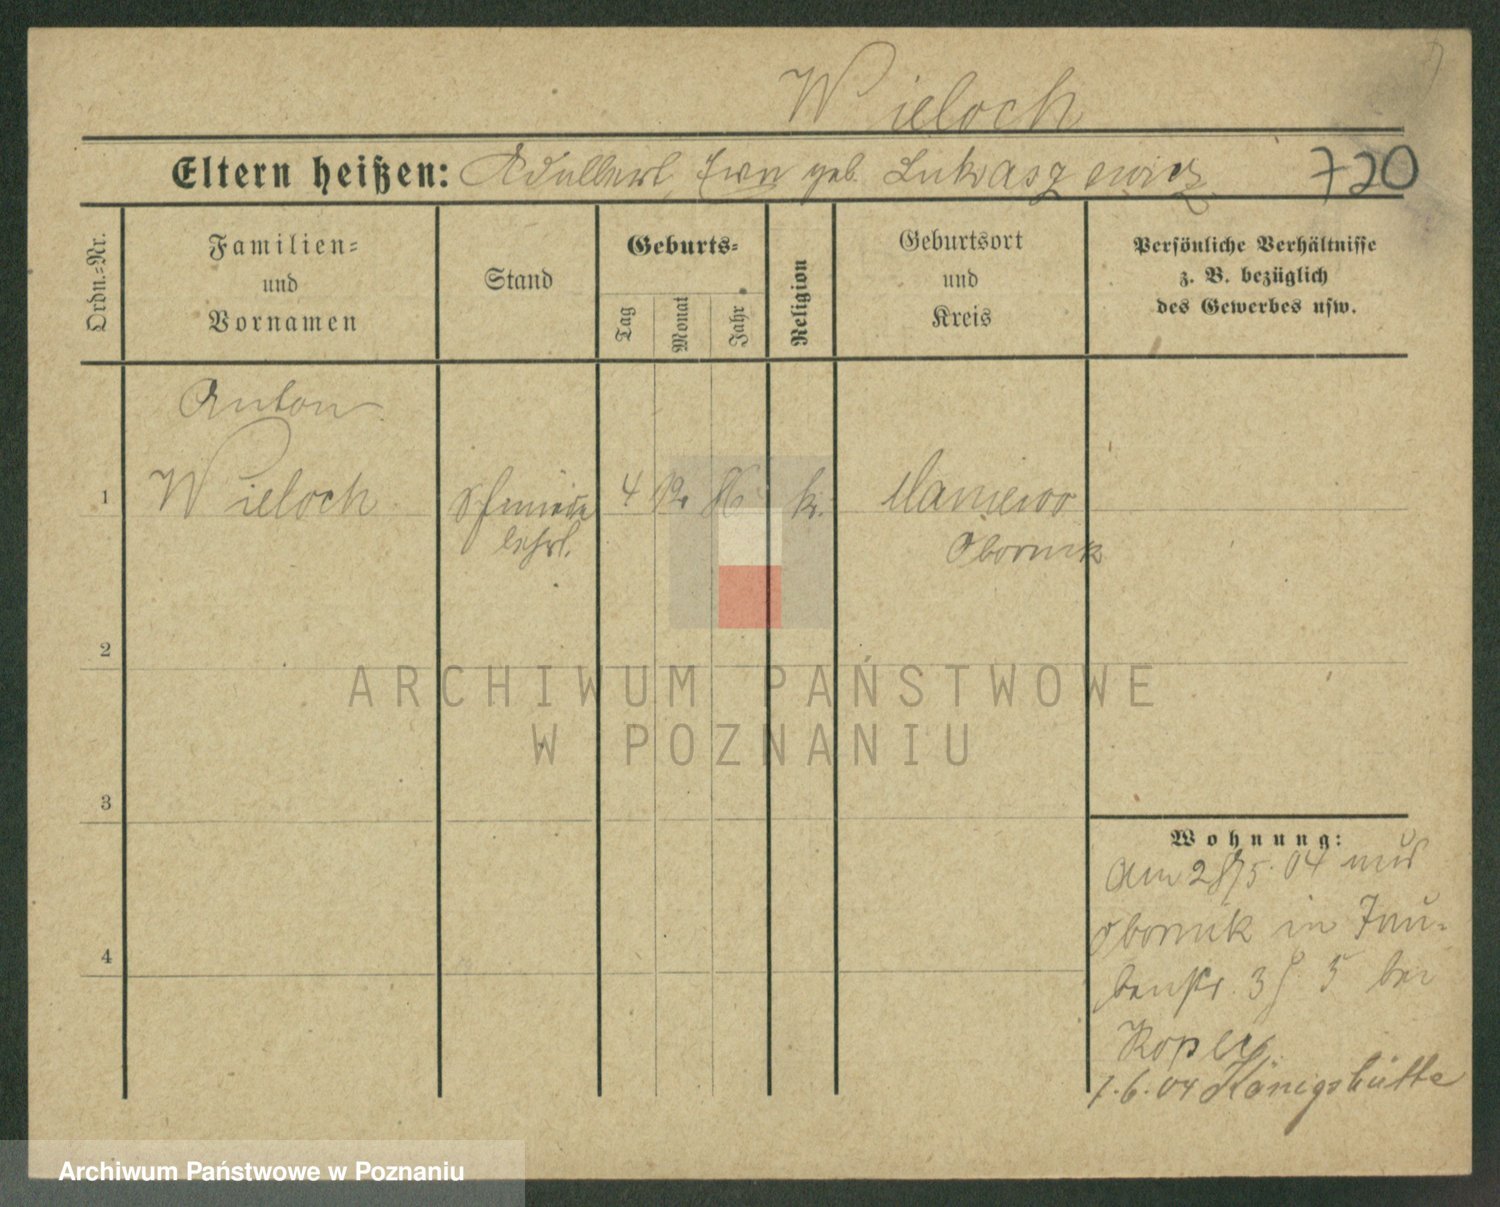 Wieloch
Eltern heißen: Adalbert, Eva geb. Lukraszewicz 720
Ordn.=Nr.
Familien=
und
Vornamen
Stand
Geburts=
Tag
Monat
Jahr
Religion
Geburtsort
und
Kreis
Persönliche Verhältnisse
z. B. bezüglich
des Gewerbes usw.
Anton
1 Wieloch Schmiede 4 12. 86 k. Maniewo
lehrl. Obornik
2
3
4
Wohnung:
Am 28/5. 04 aus
Obornik in Trau-
benstr. 3 5 bei
1.6.04 Königshütte
ARCHIWUM PAŃSTWOWE
W POZNANIU
Archiwum Państwowe w Poznaniu